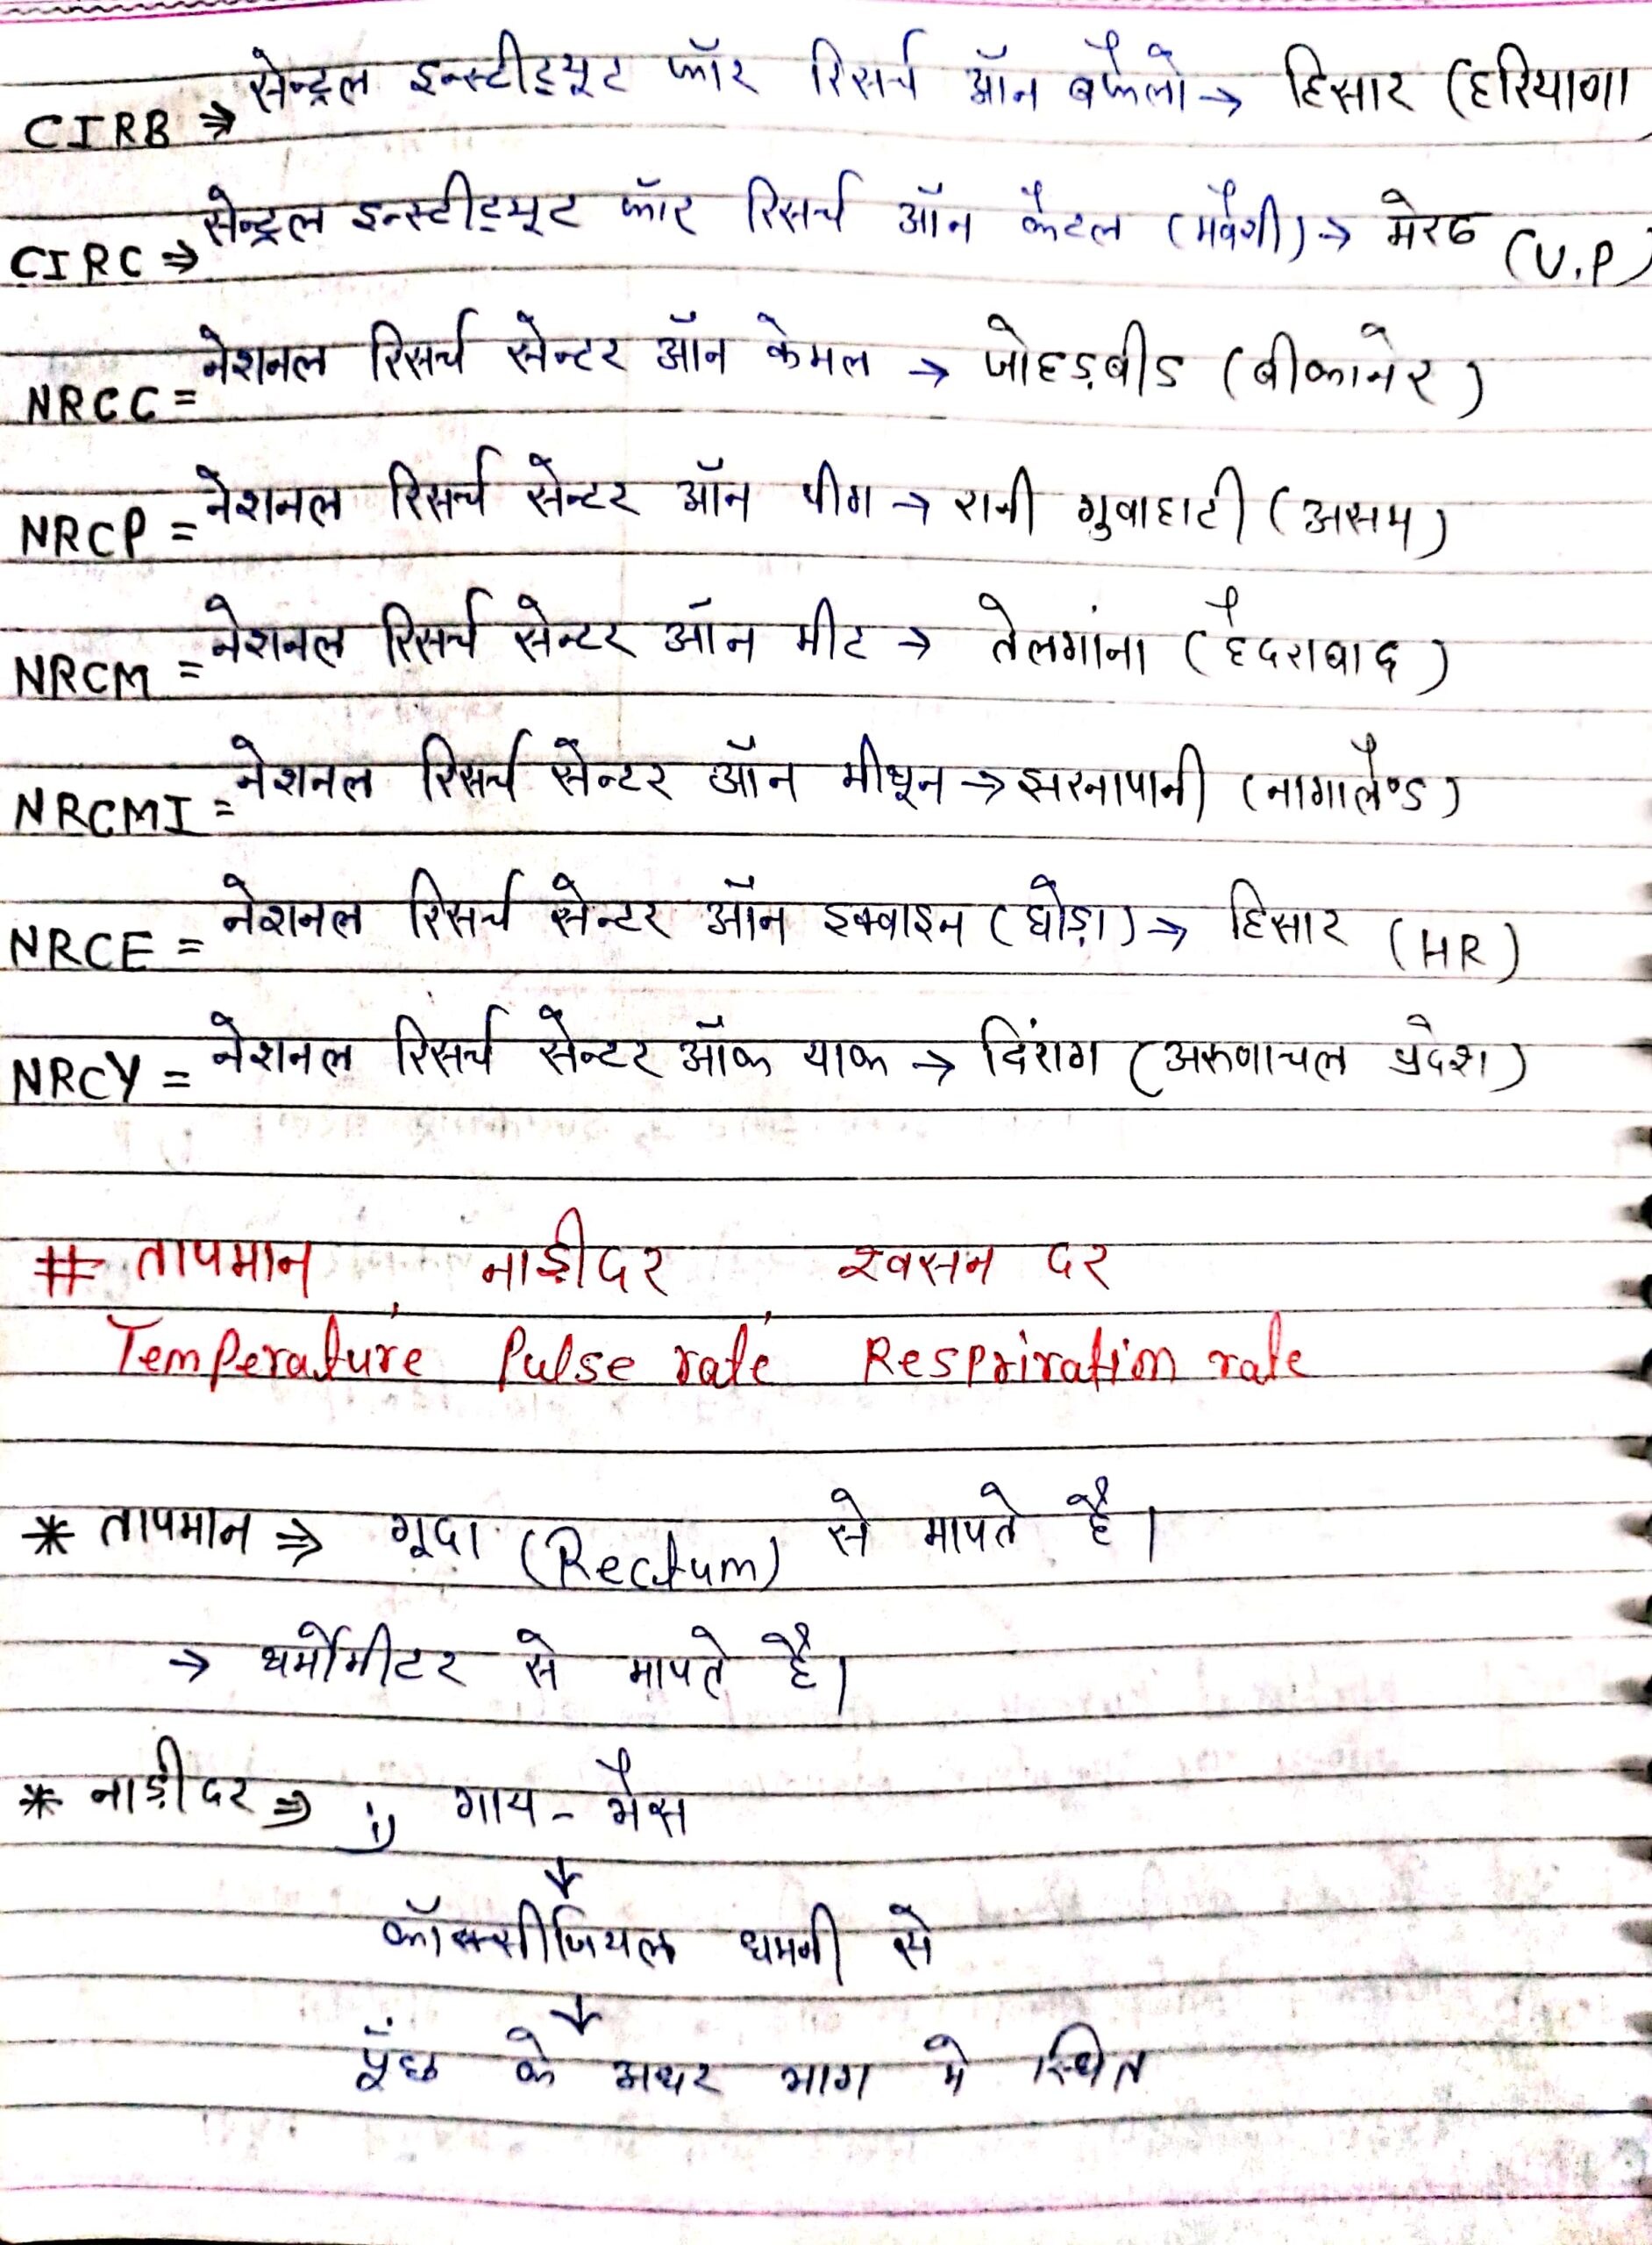 CIRB ⇒ सेन्ट्रल इन्स्टीट्यूट फॉर रिसर्च ऑन बफैलो → हिसार (हरियाणा)
CIRC ⇒ सेन्ट्रल इन्स्टीट्यूट फॉर रिसर्च ऑन कैटल (मवेशी) → मेरठ (U.P)
NRCC = नेशनल रिसर्च सेन्टर ऑन केमल → जोहड़बीड (बीकानेर)
NRCP = नेशनल रिसर्च सेन्टर ऑन पीग → रानी गुवाहाटी (असम)
NRCM = नेशनल रिसर्च सेन्टर ऑन मीट → तेलगांना (हैदराबाद)
NRCMI = नेशनल रिसर्च सेन्टर ऑन मीथून → झरनापानी (नागालैण्ड)
NRCE = नेशनल रिसर्च सेन्टर ऑन इक्वाइन (घोड़ा) → हिसार (HR)
NRCY = नेशनल रिसर्च सेन्टर ऑफ याक → दिंराग (अरुणाचल प्रदेश)
# तापमान, नाड़ीदर, श्वसन दर
Temperature Pulse rate Respriration rate
* तापमान ⇒ गूदा (Rectum) से मापते है।
→ थर्मोमीटर से मापते है।
* नाड़ीदर ⇒ i) गाय - भैस
↓
कॉक्सीजियल धमनी से
↓
पूँछ के अधर भाग मे स्थित